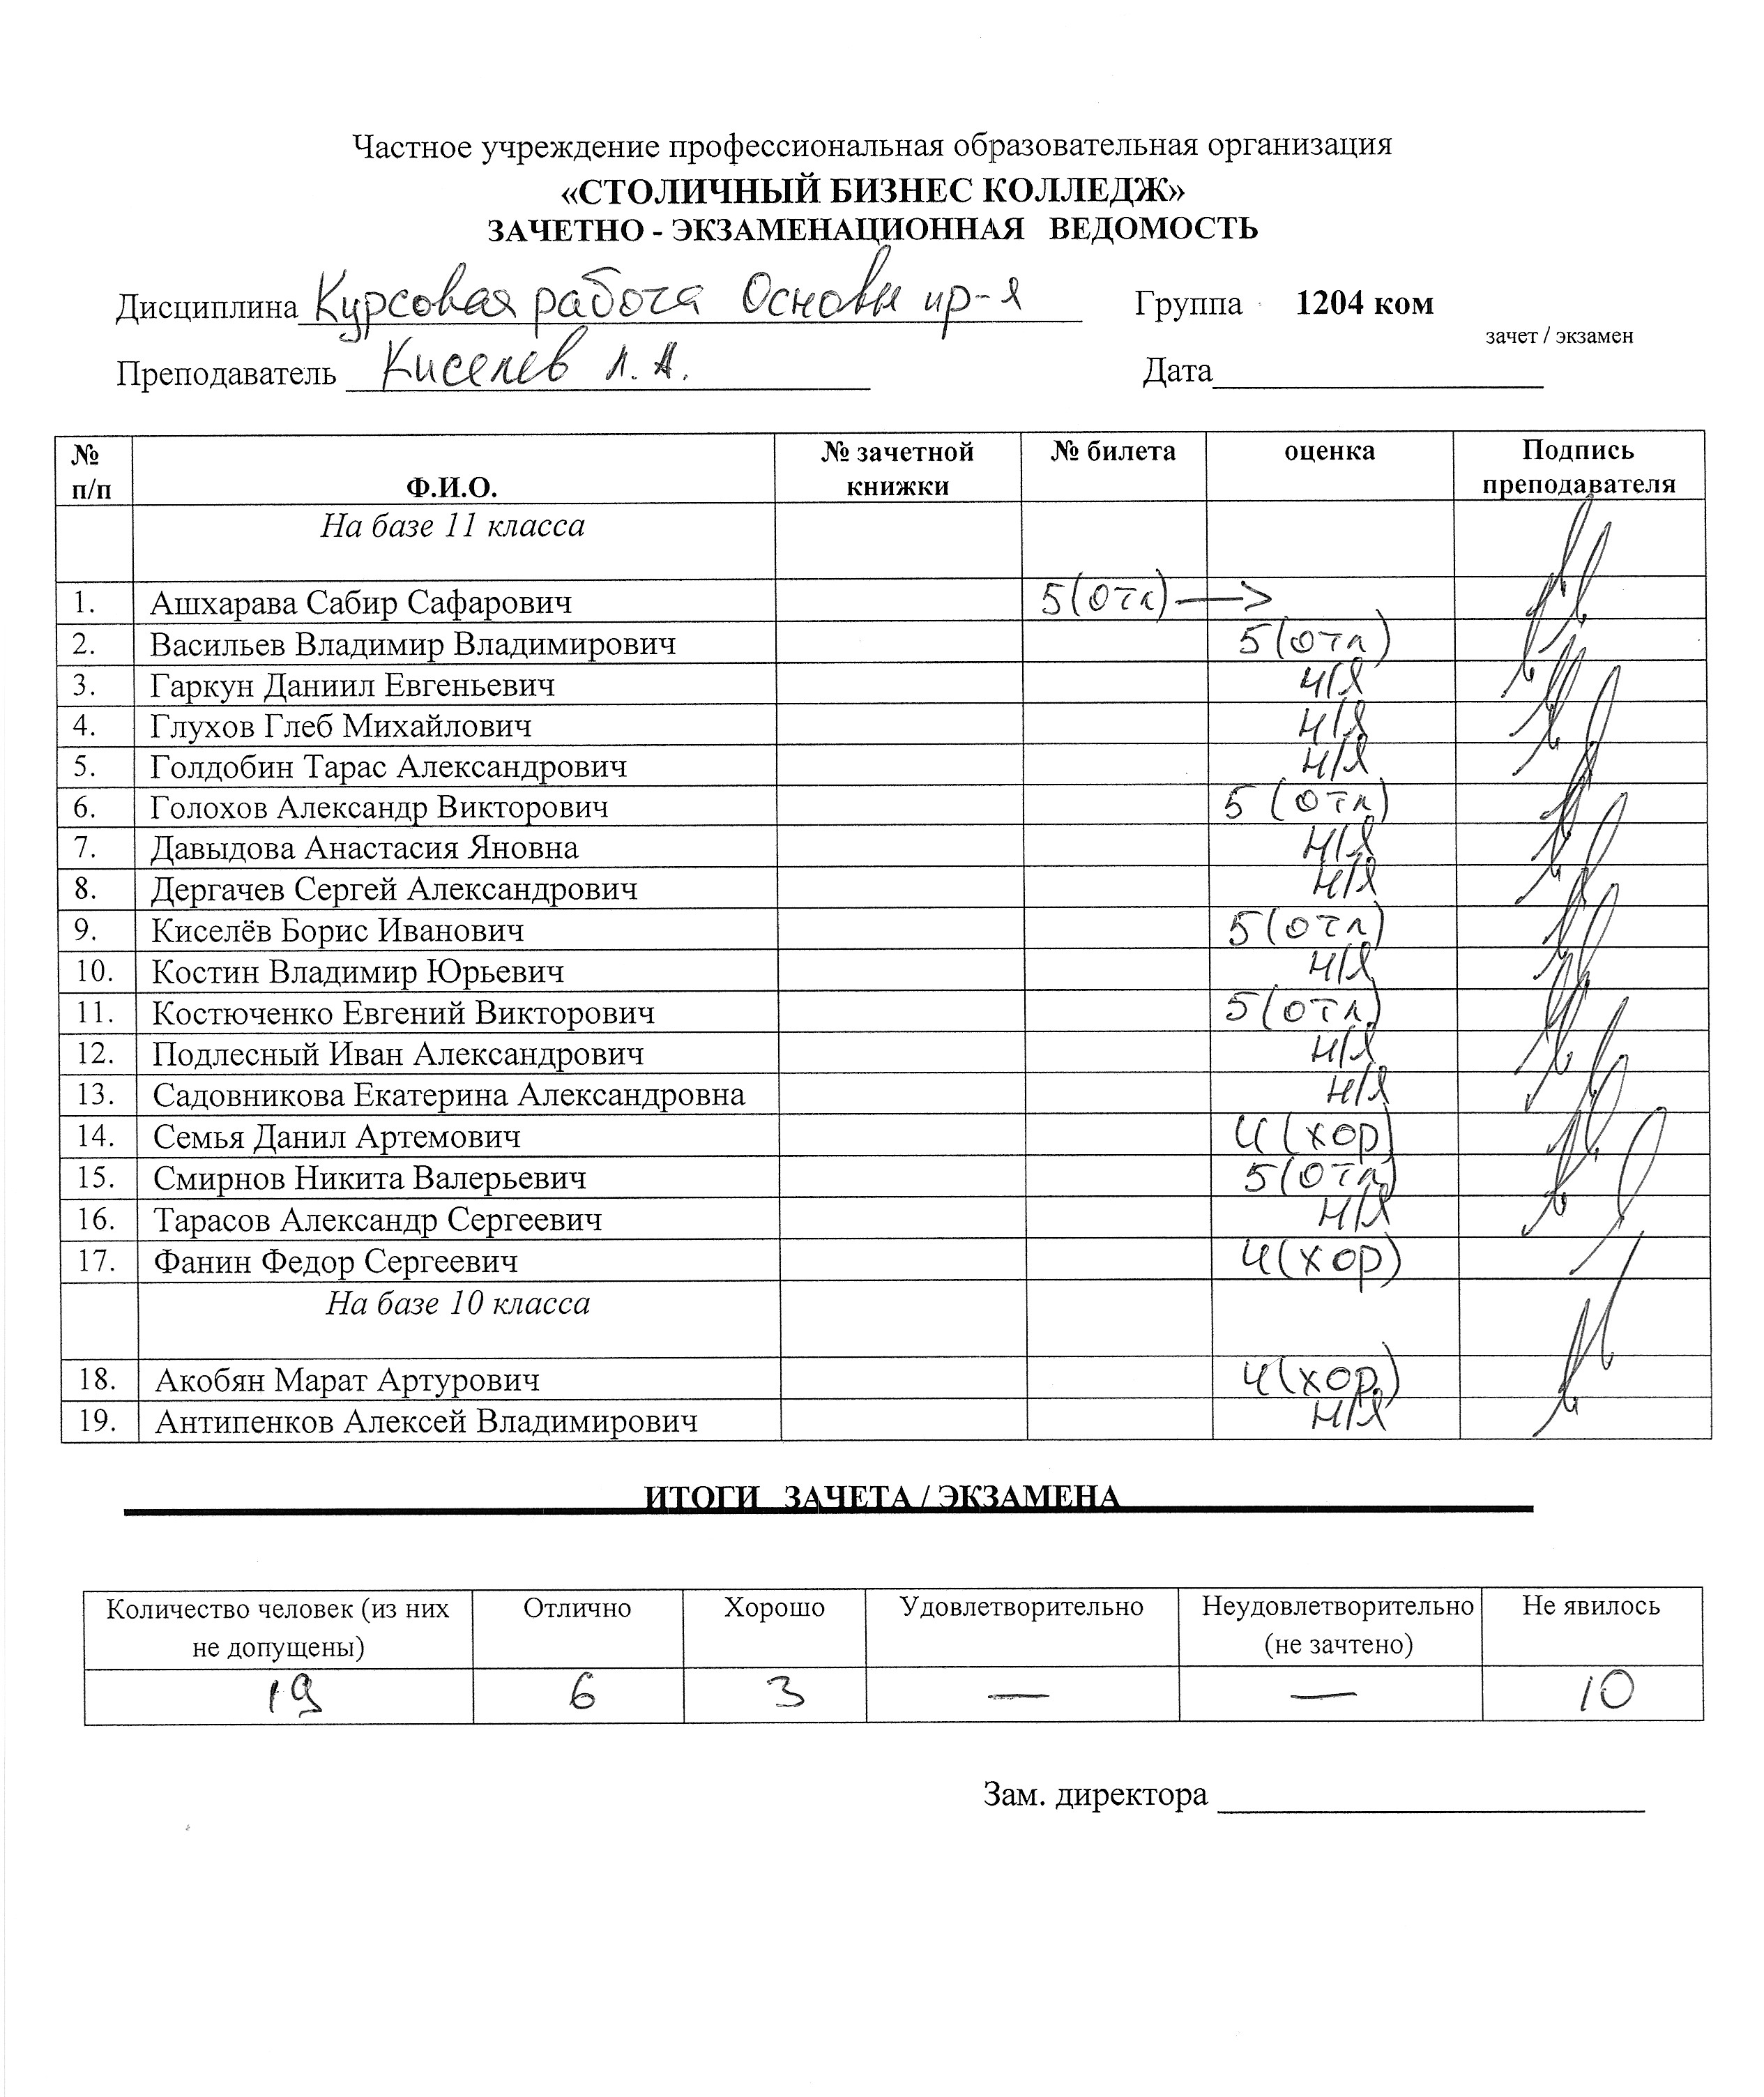 Частное учреждение профессиональная образовательная организация
«СТОЛИЧНЫЙ БИЗНЕС КОЛЛЕДЖ»
ЗАЧЕТНО - ЭКЗАМЕНАЦИОННАЯ ВЕДОМОСТЬ
Дисциплина Курсовая работа Основы пр-я Группа 1204 ком
зачет / экзамен
Преподаватель Киселев Л. А. Дата
№ п/п Ф.И.О. № зачетной книжки № билета оценка Подпись преподавателя
На базе 11 класса
1. Ашхарава Сабир Сафарович 5(отл)
2. Васильев Владимир Владимирович 5(отл)
3. Гаркун Даниил Евгеньевич н/я
4. Глухов Глеб Михайлович н/я
5. Голдобин Тарас Александрович н/я
6. Голохов Александр Викторович 5 (отл)
7. Давыдова Анастасия Яновна н/я
8. Дергачев Сергей Александрович н/я
9. Киселёв Борис Иванович 5(отл)
10. Костин Владимир Юрьевич н/я
11. Костюченко Евгений Викторович 5(отл)
12. Подлесный Иван Александрович н/я
13. Садовникова Екатерина Александровна н/я
14. Семья Данил Артемович 4(хор)
15. Смирнов Никита Валерьевич 5(отл)
16. Тарасов Александр Сергеевич н/я
17. Фанин Федор Сергеевич 4(хор)
На базе 10 класса
18. Акобян Марат Артурович 4(хор)
19. Антипенков Алексей Владимирович н/я
ИТОГИ ЗАЧЕТА / ЭКЗАМЕНА
Количество человек (из них не допущены) Отлично Хорошо Удовлетворительно Неудовлетворительно (не зачтено) Не явилось
19 6 3 — — 10
Зам. директора